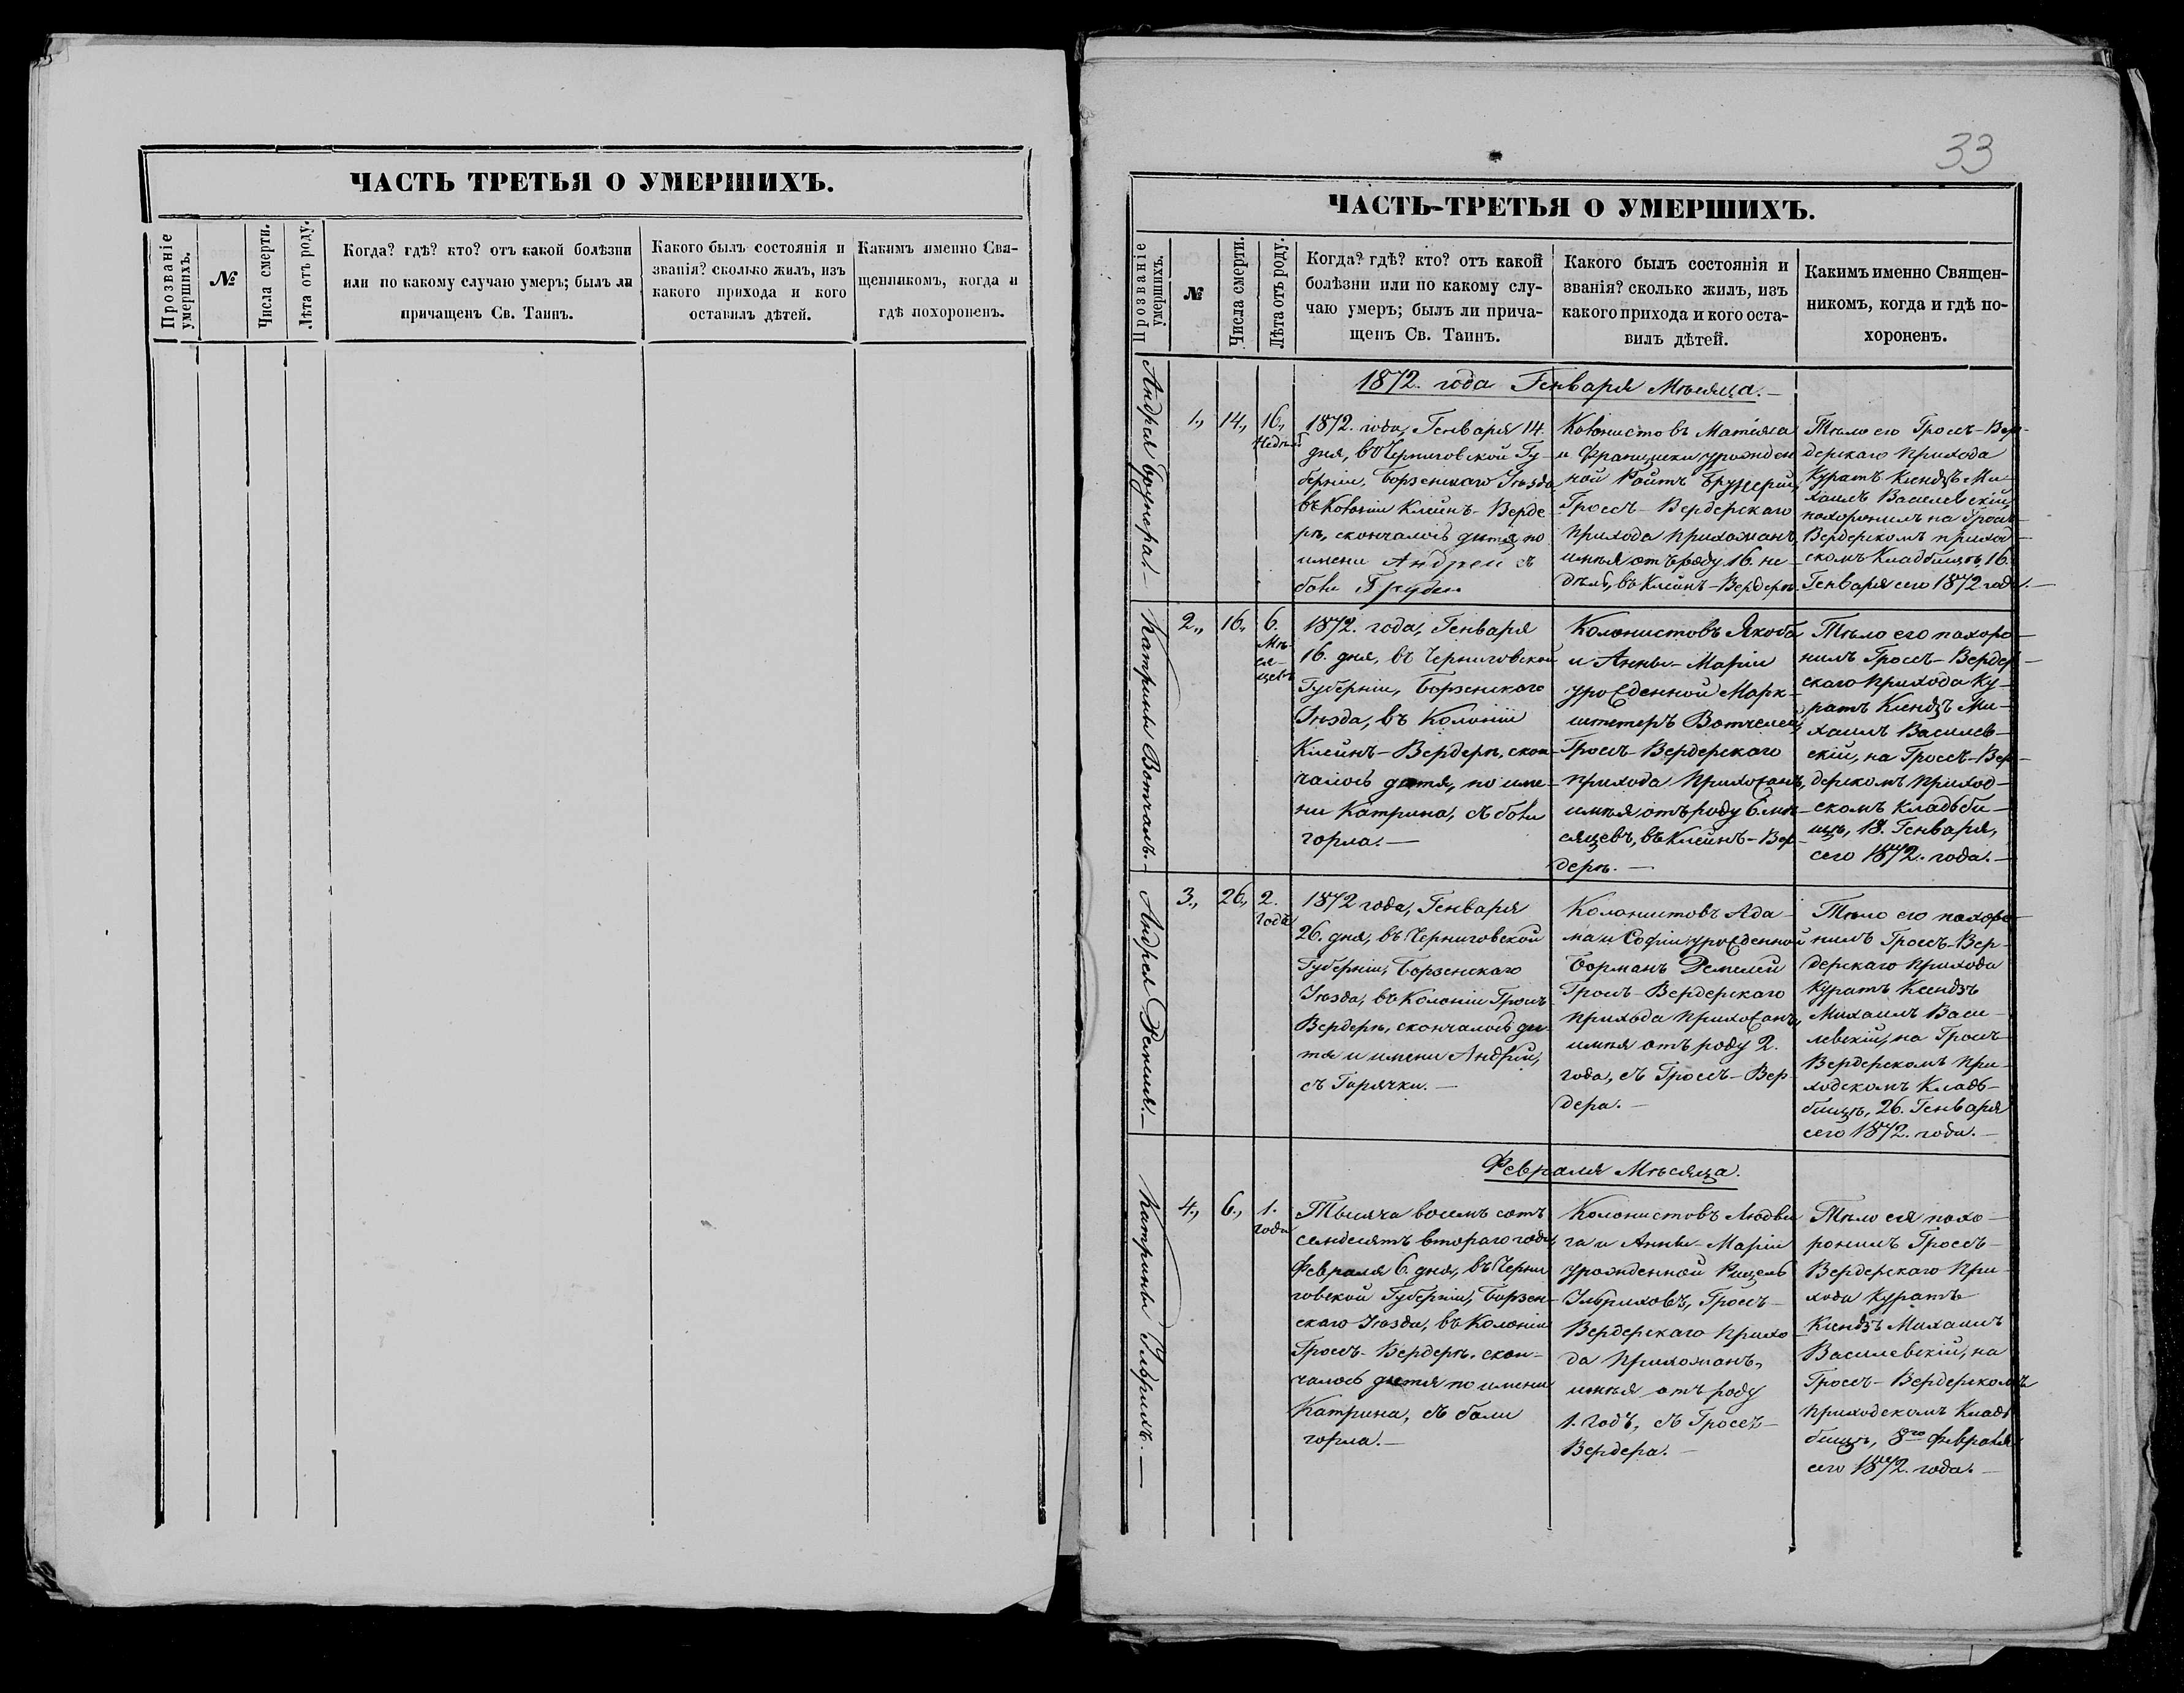 ЧАСТЬ ТРЕТЬЯ О УМЕРШИХЪ.
Прозваніе умершихъ.
№
Числа смерти.
Лѣта отъ роду.
Когда? гдѣ? кто? отъ какой болѣзни
или по какому случаю умеръ; былъ ли
причащенъ Св. Таинъ.
Какого былъ состоянія и
званія? сколько жилъ, изъ
какого прихода и кого
оставилъ дѣтей.
Какимъ именно Свя-
щенникомъ, когда и
гдѣ похороненъ.
33
ЧАСТЬ-ТРЕТЬЯ О УМЕРШИХЪ.
Прозваніе умершихъ.
№
Числа смерти.
Лѣта отъ роду.
Когда? гдѣ? кто? отъ какой
болѣзни или по какому слу-
чаю умеръ; былъ ли прича-
щенъ Св. Таинъ.
Какого былъ состоянія и
званія? сколько жилъ, изъ
какого прихода и кого оста-
вилъ дѣтей.
Какимъ именно Священ-
никомъ, когда и гдѣ по-
хороненъ.
1872. года Генваря Мѣсяца.—
Андрея Брунера.—
1., 14., 16.,
1872. года, Генваря 14.
дня, въ Черниговской Гу-
берніи, Борзенскаго Уѣзда
въ Колоніи Клейнъ-Верде-
рѣ, скончалось дитя по
имени Андрей съ
боли Груди
Колонистовъ Матіяса
и Францишки урожден
ной Ройтъ Брунерій,
Гроссъ-Вердерскаго
прихода прихожанъ,
имѣя отъ роду 16. не-
дѣль, въ Клейнъ-Вердерѣ.
Тѣло его Гроссъ-Вер-
дерскаго прихода
Куратъ Ксендзъ Ми-
хаилъ Василевскій,
похоронилъ на Гроссъ-
Вердерскомъ приход-
скомъ Кладбищѣ, 16.
Генваря сего 1872 года.—
Катрины Вотчалъ.—
2., 16., 6.
Мѣ-
ся-
цевъ
1872. года, Генваря
16. дня, въ Черниговской
Губерніи, Борзенскаго
Уѣзда, въ Колоніи
Клейнъ-Вердерѣ, скон-
чалось дитя, по име-
ни Катрина, съ боли
горла.—
Колонистовъ Якоба
и Анны-Маріи
урожденной Марк-
штетеръ Вотчелей,
Гроссъ-Вердерскаго
прихода Прихожанъ,
имѣя отъ роду 6. мѣ-
сяцевъ, въ Клейнъ-Вер-
дерѣ.—
Тѣло его похоро-
нилъ Гроссъ-Вердер-
скаго прихода Ку-
ратъ Ксендзъ Ми-
хаилъ Василев-
скій, на Гроссъ-Вер-
дерскомъ приход-
скомъ кладбби-
щѣ, 18. Генваря,
сего 1872. года.—
Андрея Демшя.—
3., 26., 2.
Года
1872 года, Генваря
26. дня, въ Черниговской
Губерніи, Борзенскаго
Уѣзда, въ Колоніи Гроссъ
Вердерѣ, скончалось ди-
тя и имени Андрій,
съ Горячки.—
Колонистовъ Ада-
ма и Софіи урожденной
Борманъ Демшей
Гроссъ-Вердерскаго
прихода прихожанъ,
имѣя отъ роду 2.
года, съ Гроссъ-Вер-
дера.—
Тѣло его похоро-
нилъ Гроссъ-Вер-
дерскаго прихода
Куратъ Ксендзъ
Михаилъ Васи-
левскій, на Гроссъ
Вердерскомъ при-
ходскомъ Кладь-
бищѣ, 26. Генваря
сего 1872. года.—
Февраля Мѣсяца.
Катрины Ильрихъ.—
4., 6., 1.
года
Тысяча восемь сотъ
семдесятъ втораго года,
Февраля 6. дня, въ Черни
говской Губерніи, Борзен-
скаго Уѣзда, въ Колоніи
Гроссъ-Вердерѣ. скон-
чалось дитя по имени
Катрина, съ боли
горла.—
Колонистовъ Людви
га и Анны-Маріи
урожденной Рицель
Ильриховъ, Гроссъ-
Вердерскаго прихо-
да прихожанъ,
имѣя отъ роду
1. годъ, съ Гроссъ-
Вердера.—
Тѣло ея похо-
ронилъ Гроссъ-
Вердерскаго При-
хода Куратъ
Ксендзъ Михаилъ
Василевскій, на
Гроссъ-Вердерскомъ
приходскомъ Кладь
бищѣ, 8го Февраля
сего 1872. года.—